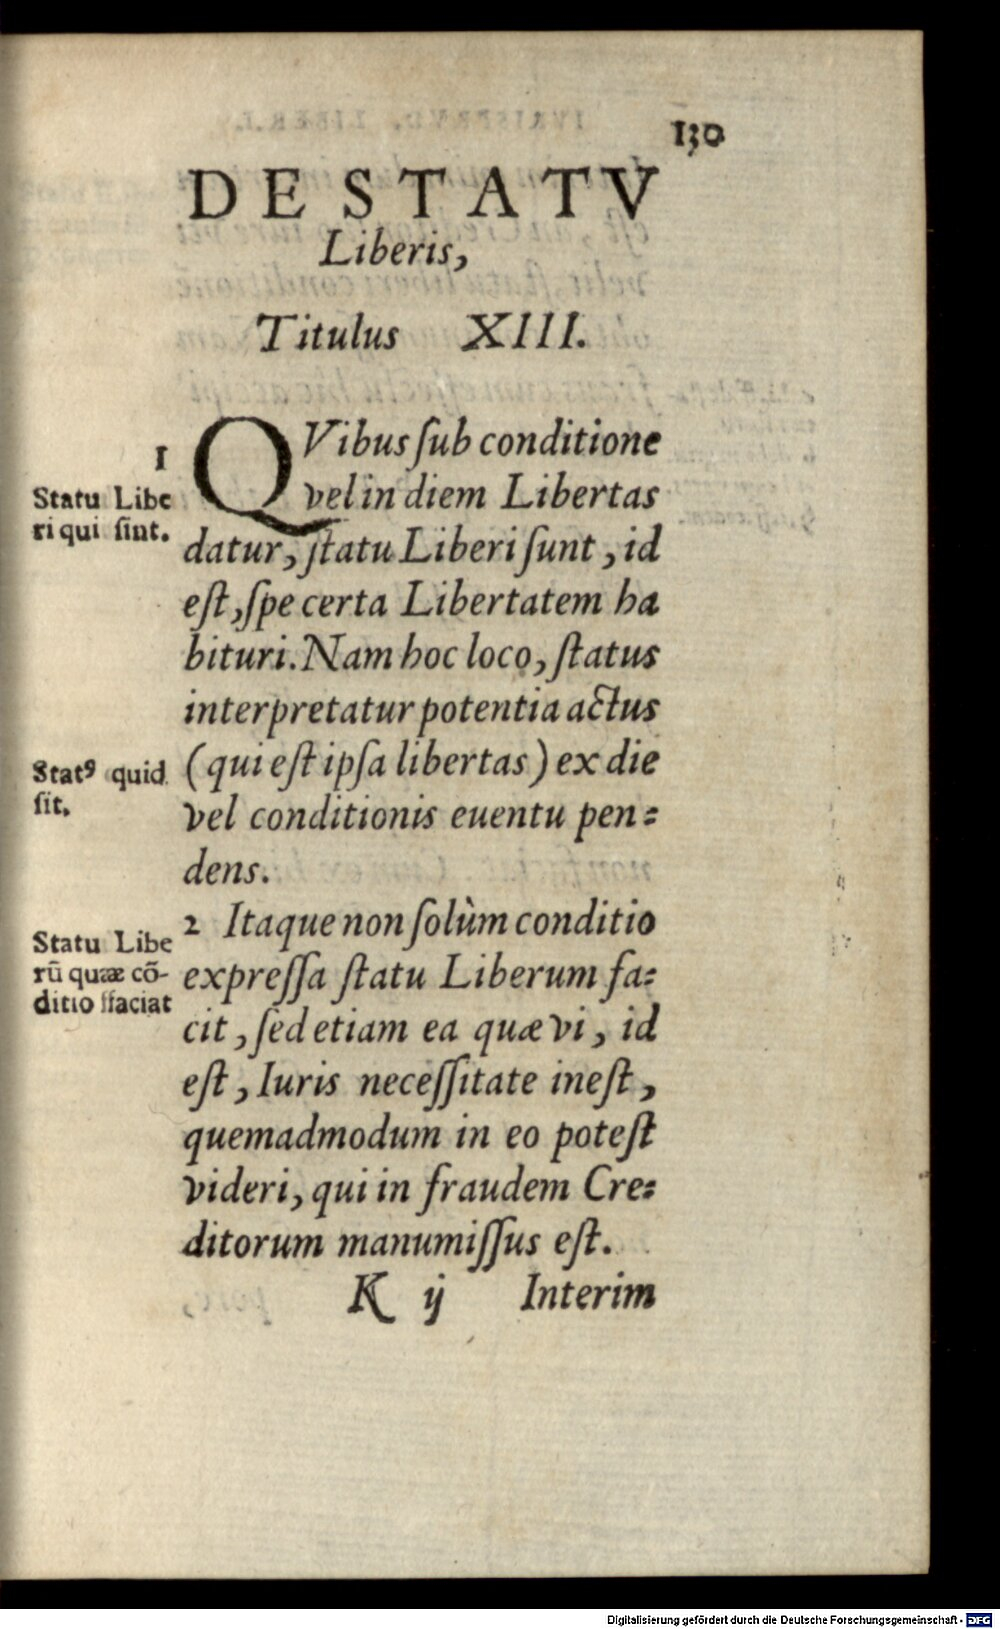 130
DE STATV
Liberis,
Titulus XIII.
1
QVibus ſub conditione
vel in diem Libertas
datur, ſtatu Liberi ſunt, id
eſt, ſpe certa Libertatem ha
bituri. Nam hoc loco, ſtatus
interpretatur potentia actus
(qui eſt ipſa libertas) ex die
vel conditionis euentu pen=
dens.
2 Itaque non ſolùm conditio
expreſſa ſtatu Liberum fa=
cit, ſed etiam ea quæ vi, id
eſt, Iuris neceſſitate ineſt,
quemadmodum in eo poteſt
videri, qui in fraudem Cre=
ditorum manumiſſus eſt.
K ij Interim
Statu Libe
ri qui ſint.
Statꝰ quid
ſit.
Statu Libe
rū quæ cō-
ditio ffaciat
Digitalisierung gefördert durch die Deutsche Forschungsgemeinschaft - DFG